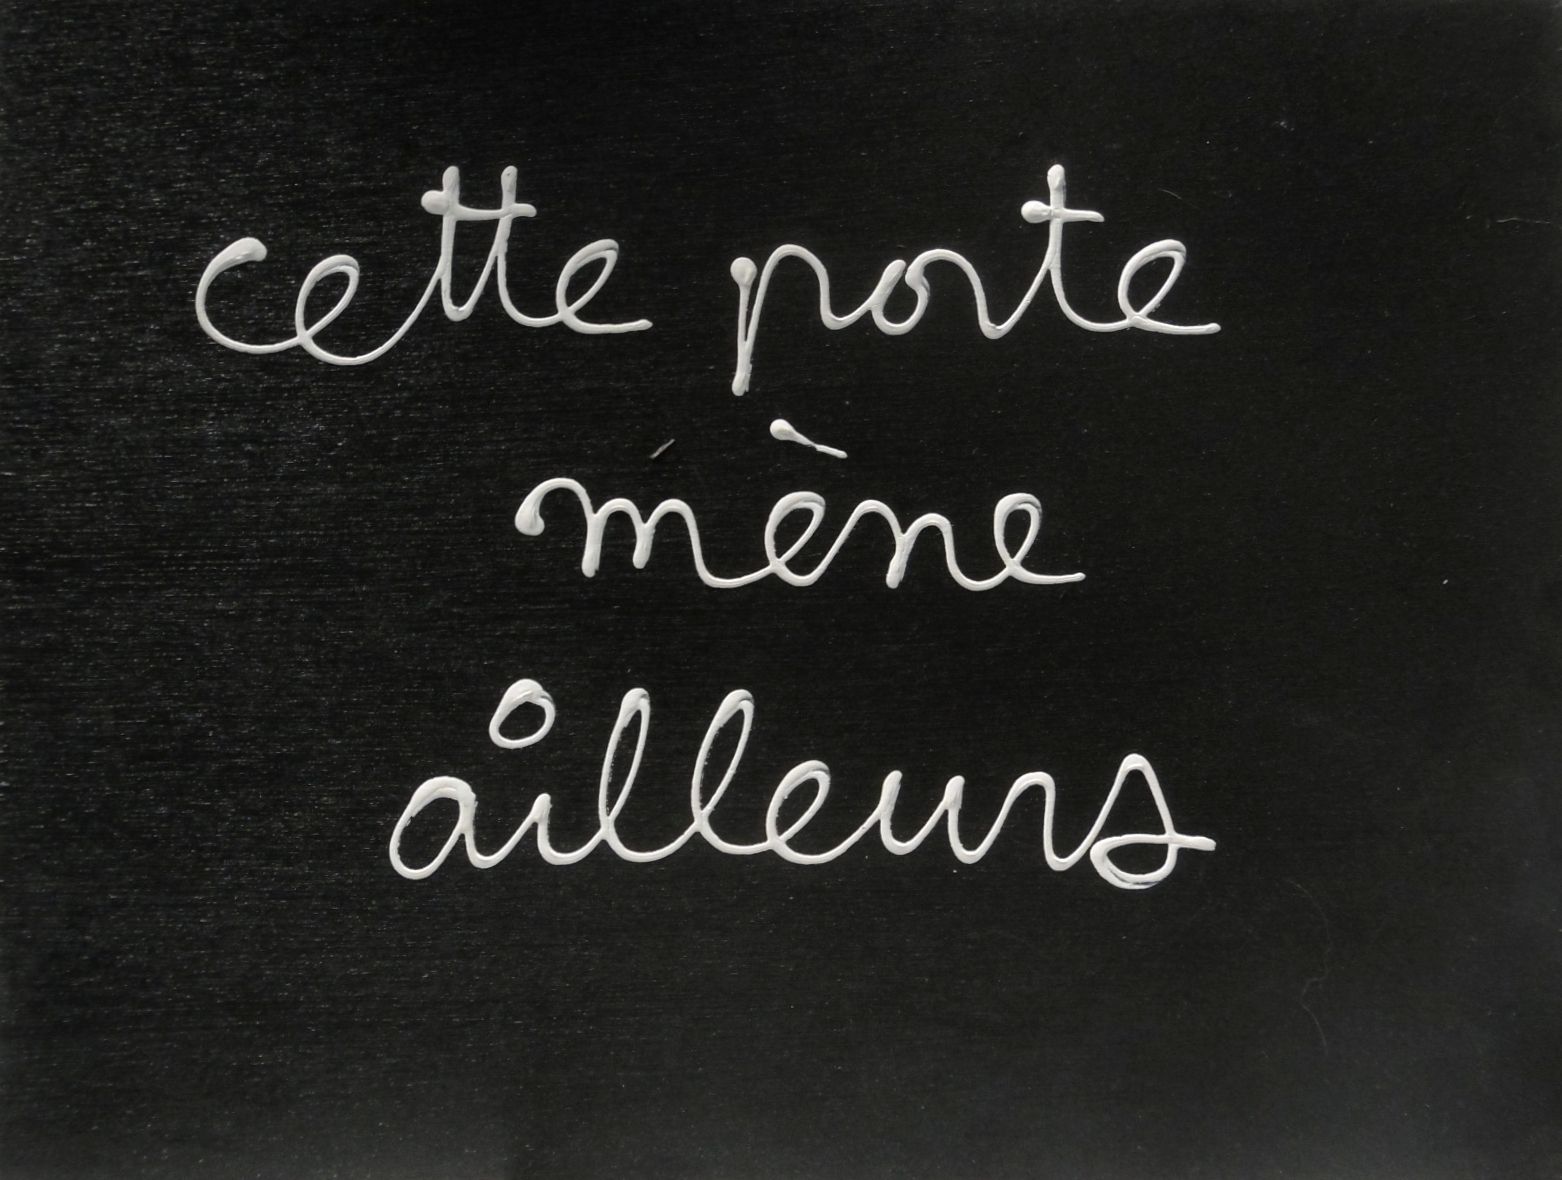 cette porte
mène
ailleurs